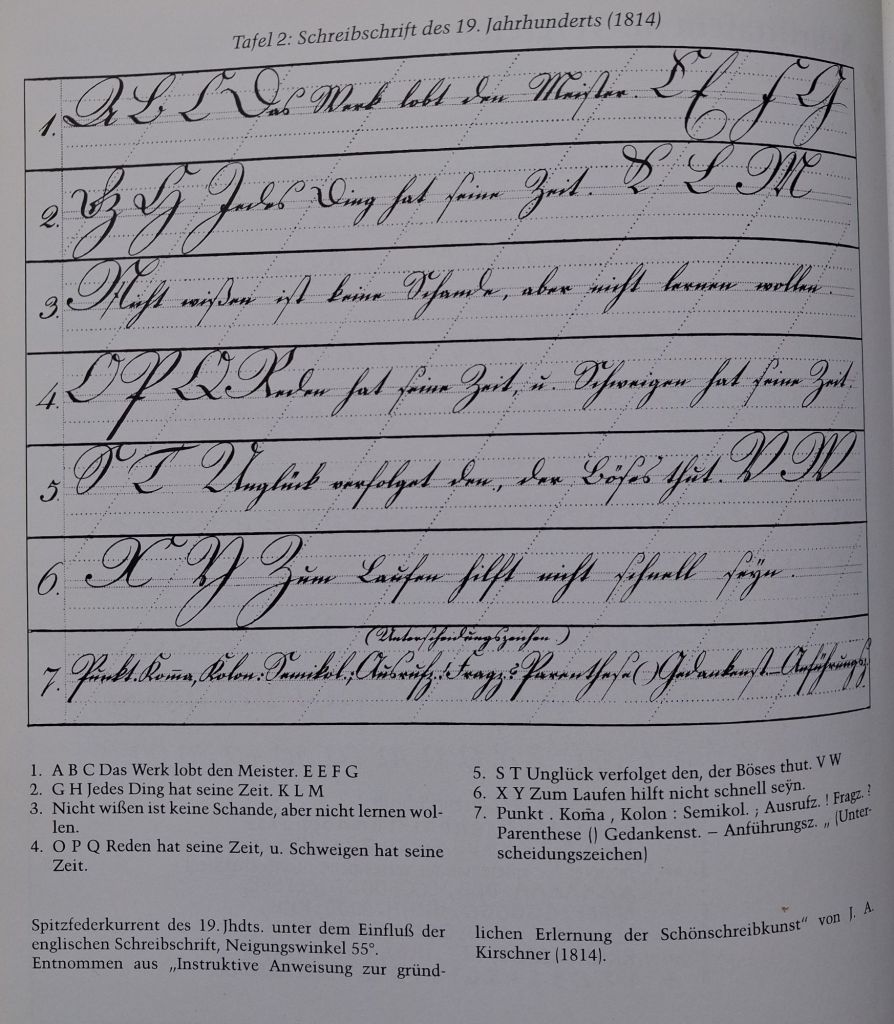 Tafel 2: Schreibschrift des 19. Jahrhunderts (1814)
1. A B C Das Werk lobt den Meister. E E F G
2. G H Jedes Ding hat seine Zeit. K L M
3. Nicht wißen ist keine Schande, aber nicht lernen wollen.
4. O P Q Reden hat seine Zeit, u. Schweigen hat seine Zeit.
5. S T Unglück verfolget den, der Böses thut. V W
6. X Y Zum Laufen hilft nicht schnell seÿn.
(Unterscheidungszeichen.)
7. Punkt . Kom̄a , Kolon : Semikol. ; Ausrufz. ! Fragz. ? Parenthese ( ) Gedankenst. – Anführungsz. „
1. A B C Das Werk lobt den Meister. E E F G
2. G H Jedes Ding hat seine Zeit. K L M
3. Nicht wißen ist keine Schande, aber nicht lernen wol-
len.
4. O P Q Reden hat seine Zeit, u. Schweigen hat seine
Zeit.
5. S T Unglück verfolget den, der Böses thut. V W
6. X Y Zum Laufen hilft nicht schnell seÿn.
7. Punkt . Kom̄a , Kolon : Semikol. ; Ausrufz. ! Fragz. ?
Parenthese () Gedankenst. – Anführungsz. „ (Unter-
scheidungszeichen)
Spitzfederkurrent des 19. Jhdts. unter dem Einfluß der
englischen Schreibschrift, Neigungswinkel 55°.
Entnommen aus „Instruktive Anweisung zur gründ-
lichen Erlernung der Schönschreibkunst“ von J. A.
Kirschner (1814).